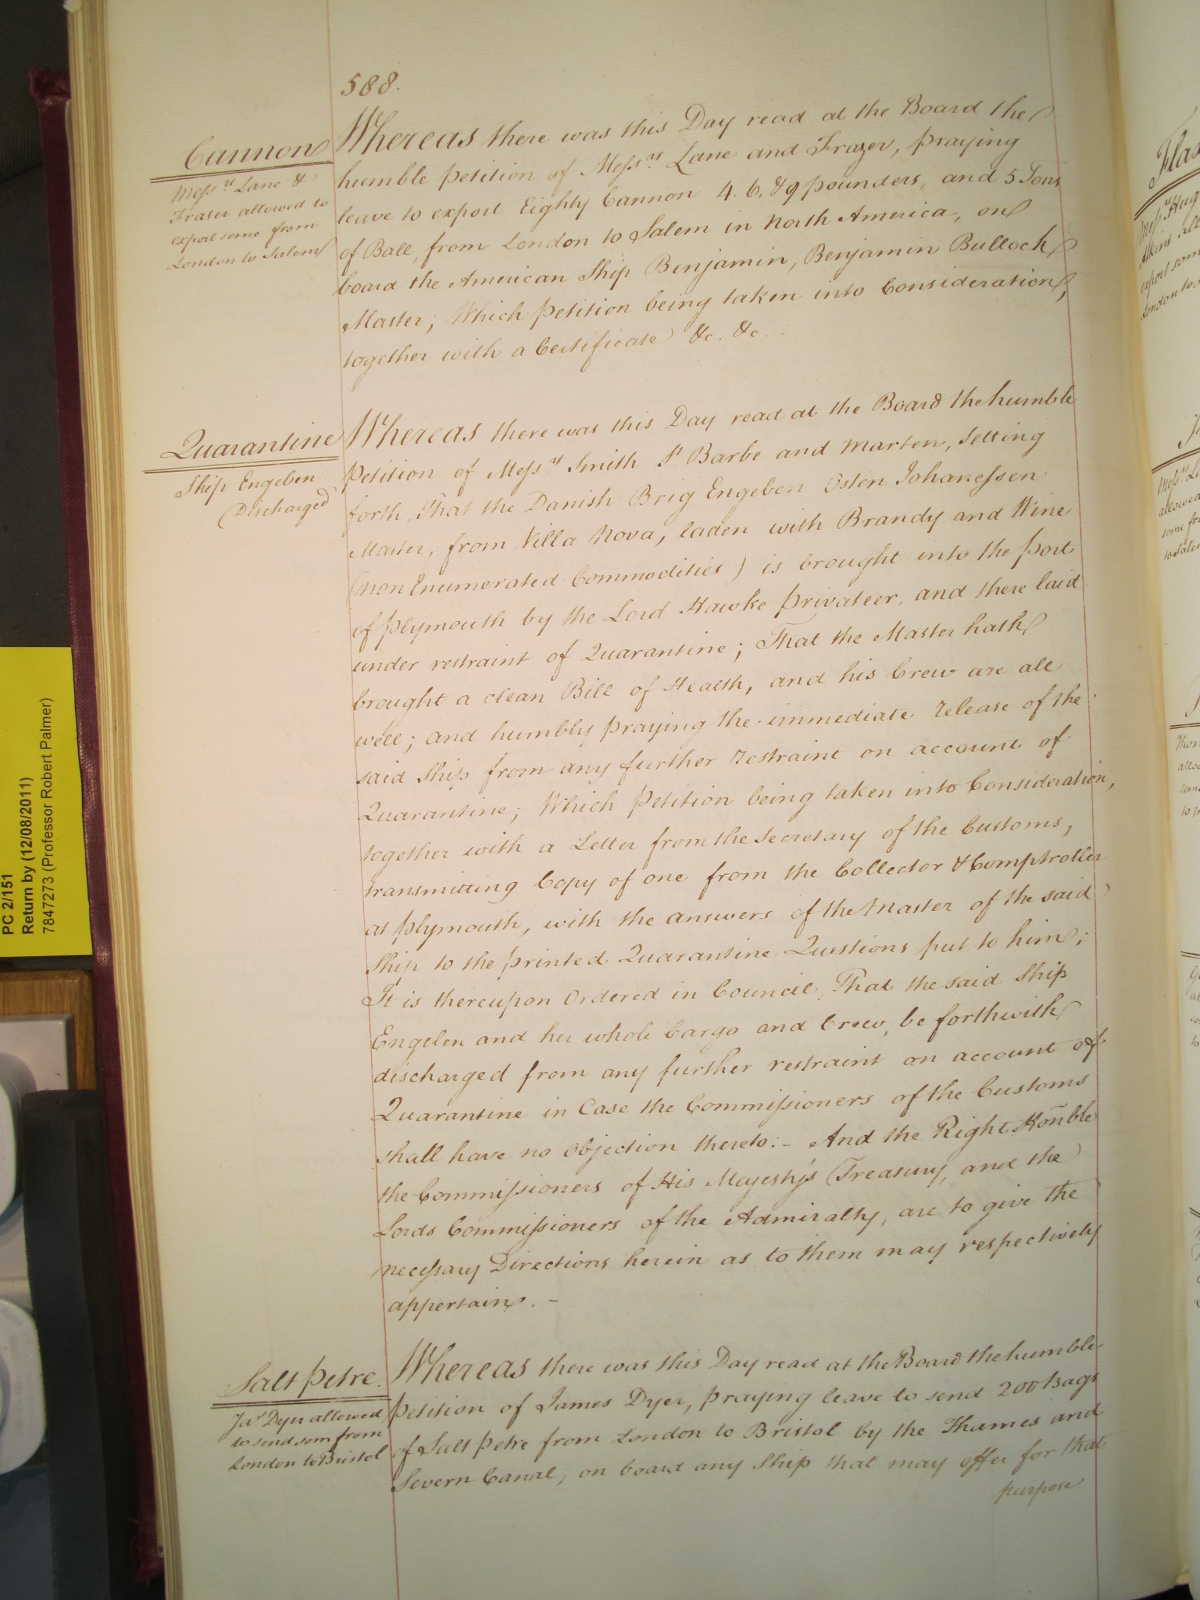 588.
Cannon
Mess.rs Lane &
Fraser allowed to
export some from
London to Salem
Whereas there was this Day read at the Board the
humble petition of Mess.rs Lane and Frazer, praying
leave to export Eighty Cannon 4. 6. & 9 pounders, and 5 Tons
of Ball, from London to Salem in North America, on
board the American Ship Benjamin, Benjamin Bullock,
Master; Which petition being taken into Consideration,
together with a Certificate &c. &c.
Quarantine
Ship Engeben
Discharged
Whereas there was this Day read at the Board the humble
Petition of Mess.rs Smith St Barbe and Marten, Setting
forth, That the Danish Brig Engeben Osten Johanessen
Master, from Villa Nova, laden with Brandy and Wine
(non Enumerated Commodities) is brought into the port
of plymouth by the Lord Hawke privateer, and there laid
under restraint of Quarantine; That the Master hath
brought a clean Bill of Health, and his Crew are all
well; and humbly praying the immediate release of the
said Ship from any further restraint on account of
Quarantine; Which Petition being taken into Consideration,
together with a Letter from the Secretary of the Customs,
transmitting Copy of one from the Collector & Comptroller
at plymouth, with the answers of the Master of the said
Ship to the printed Quarantine Questions put to him;
It is thereupon Ordered in Council, That the said Ship
Engelen and her whole Cargo and Crew, be forthwith
discharged from any further restraint on account of
Quarantine in Case the Commissioners of the Customs
shall have no Objection thereto. - And the Right Honble
the Commissioners of His Majesty's Treasury, and the
Lords Commissioners of the Admiralty, are to give the
necessary Directions herein as to them may respectively
appertain. -
Salt Petre.
Jas. Dyer allowed
to send som from
London to Bristol
Whereas there was this Day read at the Board the humble
Petition of James Dyer, praying leave to send 200 Bags
of Salt Petre from London to Bristol by the Thames and
Severn Canal, on board any Ship that may offer for that
purpose
PC 2/151
Return by (12/08/2011)
7847273 (Professor Robert Palmer)